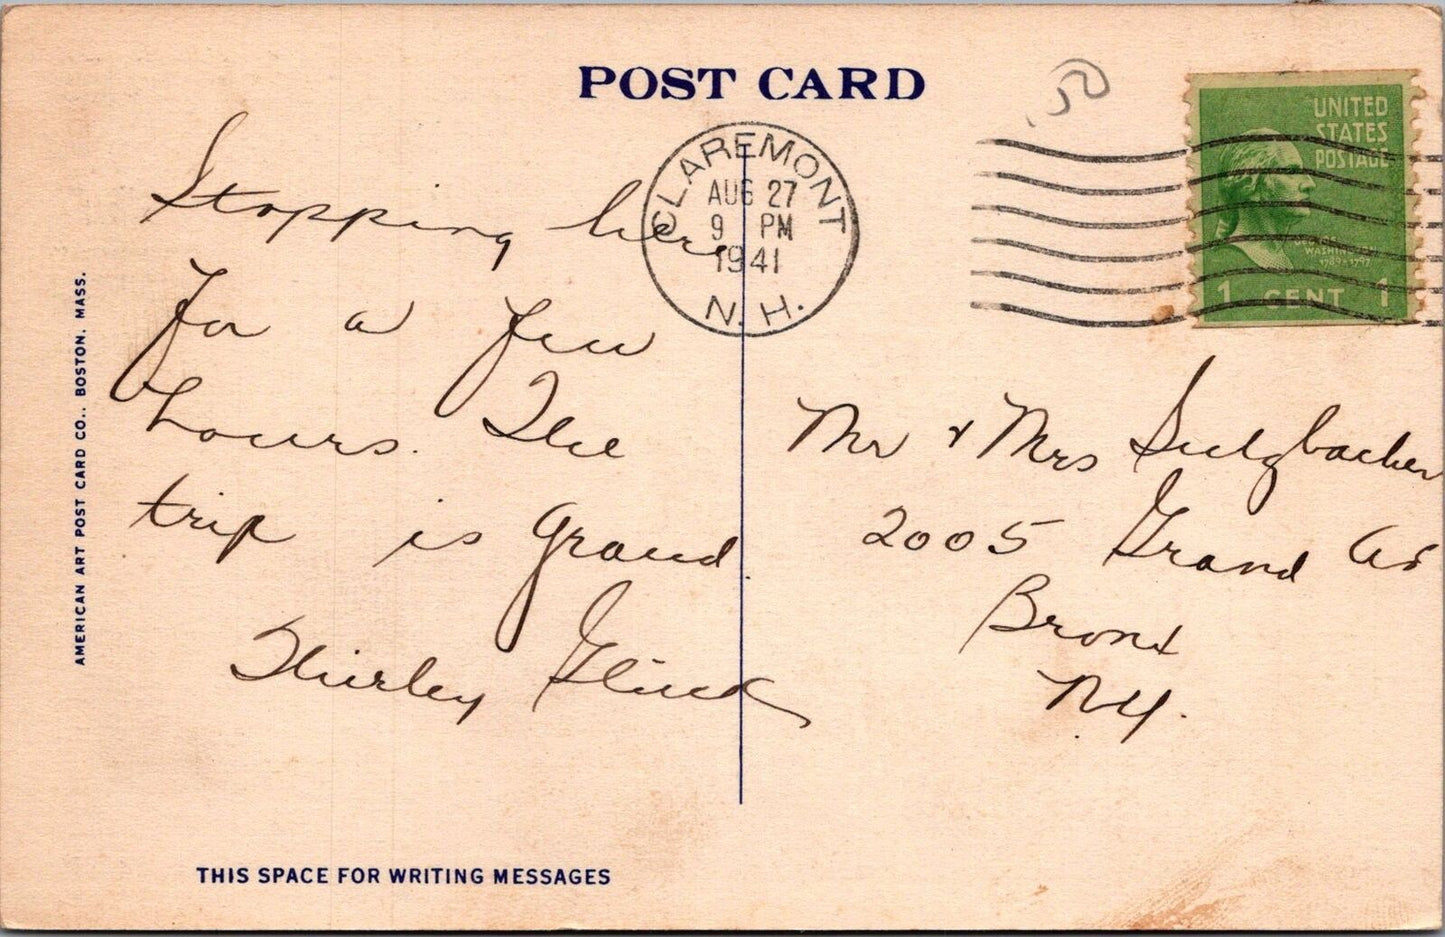 POST CARD
.50
CLAREMONT
AUG 27
9 PM
1941
N.H.
UNITED
STATES
POSTAGE
1 CENT 1
Stopping here
for a few
hours. The
trip is grand.
Shirley Gluck
Mr & Mrs Sulzbacher
2005 Grand Av
Bronx
N.Y.
AMERICAN ART POST CARD CO., BOSTON, MASS.
THIS SPACE FOR WRITING MESSAGES